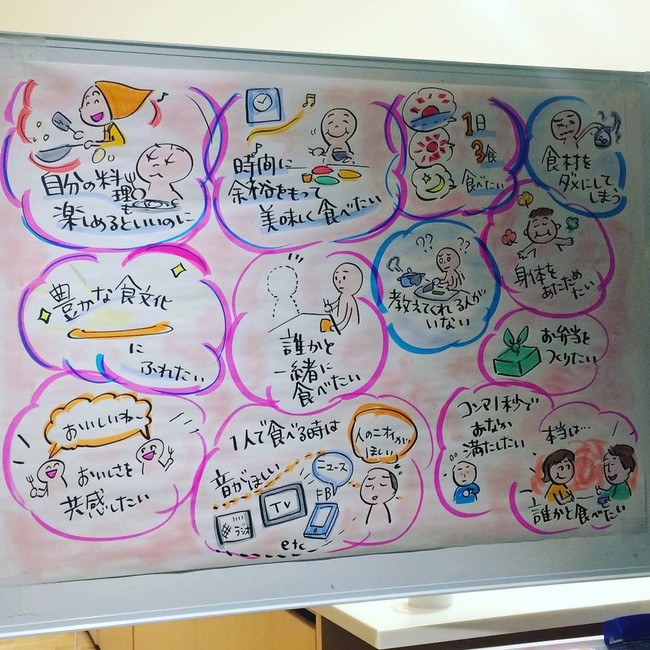 自分の料理も
楽しめるといいのに
時間に
余裕をもって
美味しく食べたい
1日
3食
食べたい
食材を
ダメにして
しまう
豊かな食文化
に
ふれたい
誰かと
一緒に
食べたい
??
??
教えてくれる人が
いない
身体を
あたため
たい
お弁当を
つくりたい
おいしいね〜
おいしさを
共感したい
1人で食べる時は
音がほしい
人のニオイが
ほしい
ニュース
FB
TV
ラジオ
etc
コンマ1秒で
おなか
満たしたい
本当は…
誰かと食べたい